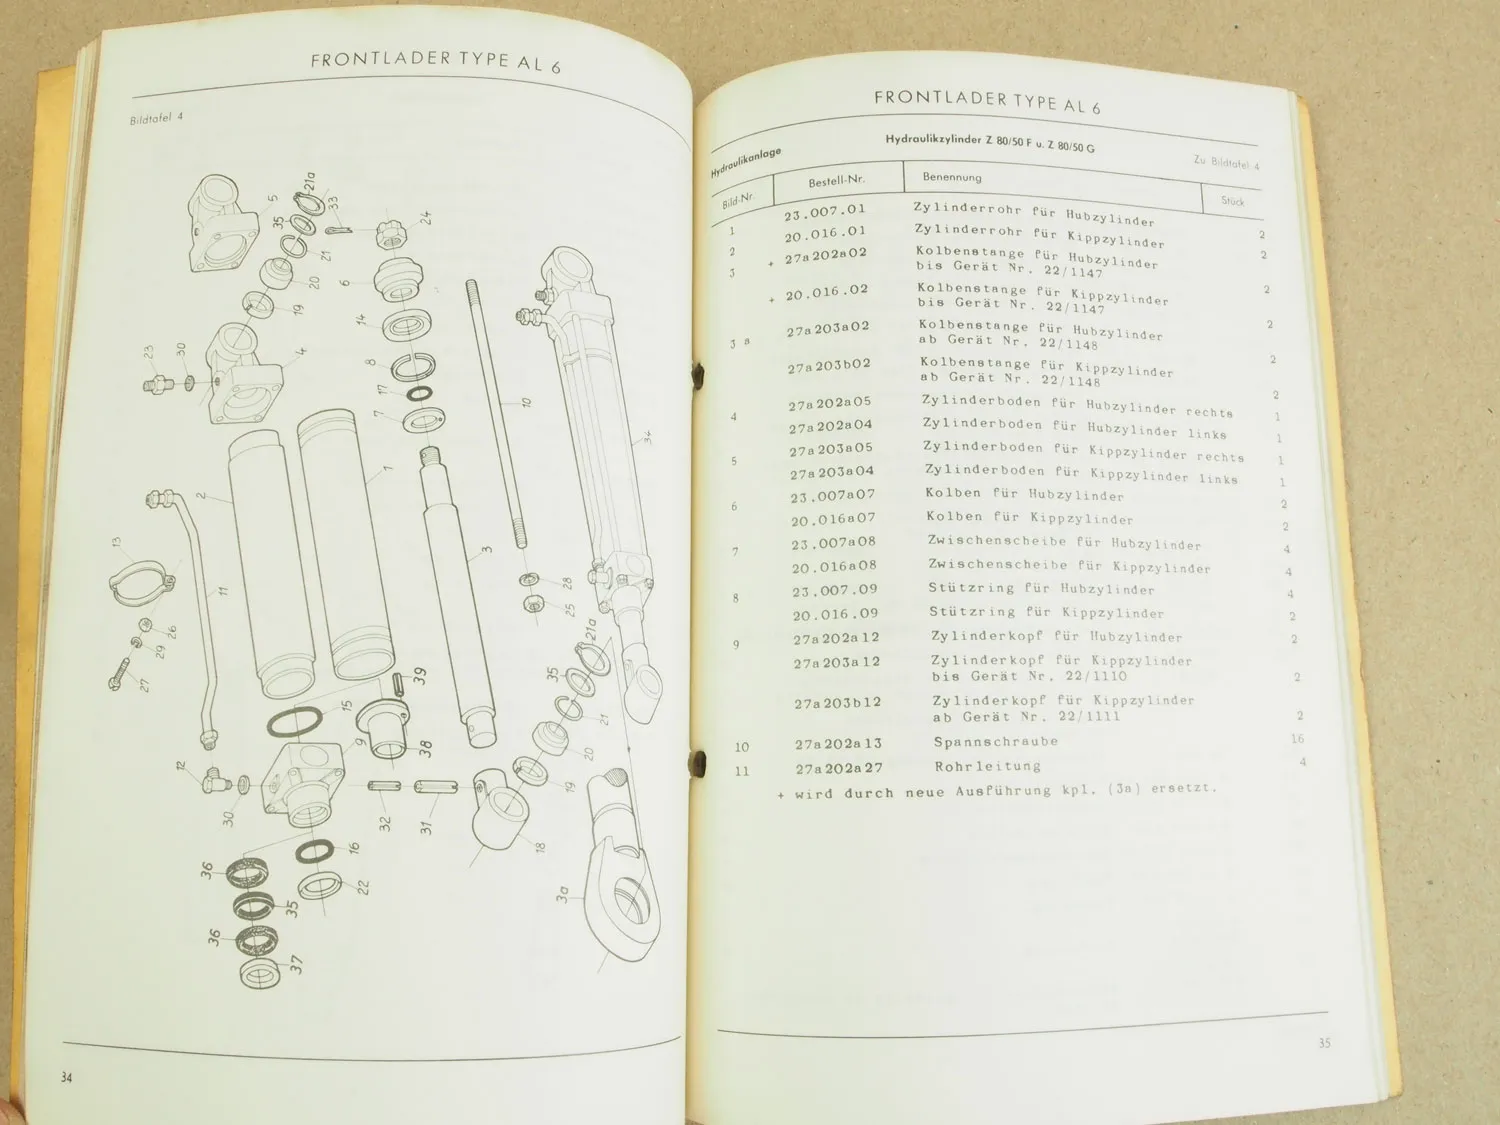 FRONTLADER TYPE AL 6
Bildtafel 4
5
21a
33
35
21
24
20
6
19
14
23
30
4
8
17
7
10
34
1
2
3
13
11
28
25
26
29
27
21a
35
39
15
9
38
21
20
12
19
30
32
31
18
16
36
22
35
3a
36
37
34
FRONTLADER TYPE AL 6
Hydraulikanlage Hydraulikzylinder Z 80/50 F u. Z 80/50 G Zu Bildtafel 4
Bild-Nr. Bestell-Nr. Benennung Stück
1 23.007.01 Zylinderrohr für Hubzylinder 2
2 20.016.01 Zylinderrohr für Kippzylinder 2
3 + 27a202a02 Kolbenstange für Hubzylinder
bis Gerät Nr. 22/1147 2
+ 20.016.02 Kolbenstange für Kippzylinder
bis Gerät Nr. 22/1147 2
3 a 27a203a02 Kolbenstange für Hubzylinder
ab Gerät Nr. 22/1148 2
27a203b02 Kolbenstange für Kippzylinder
ab Gerät Nr. 22/1148 2
4 27a202a05 Zylinderboden für Hubzylinder rechts 1
27a202a04 Zylinderboden für Hubzylinder links 1
5 27a203a05 Zylinderboden für Kippzylinder rechts 1
27a203a04 Zylinderboden für Kippzylinder links 1
6 23.007a07 Kolben für Hubzylinder 2
20.016a07 Kolben für Kippzylinder 2
7 23.007a08 Zwischenscheibe für Hubzylinder 4
20.016a08 Zwischenscheibe für Kippzylinder 4
8 23.007.09 Stützring für Hubzylinder 4
20.016.09 Stützring für Kippzylinder 2
9 27a202a12 Zylinderkopf für Hubzylinder 2
27a203a12 Zylinderkopf für Kippzylinder
bis Gerät Nr. 22/1110 2
27a203b12 Zylinderkopf für Kippzylinder
ab Gerät Nr. 22/1111 2
10 27a202a13 Spannschraube 16
11 27a202a27 Rohrleitung 4
+ wird durch neue Ausführung kpl. (3a) ersetzt.
35